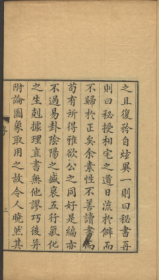 之且復矜自炫異一則曰秘書再
則曰秘授相宅之道日流於僻而
不歸於正矣余素性不善讀書
苟有所得雅欲公之同好是編亦
不過易卦陰陽之盛衰五行氣化
之生剋據理直書無他謬巧後另
附論圖象取用之故令人曉然其